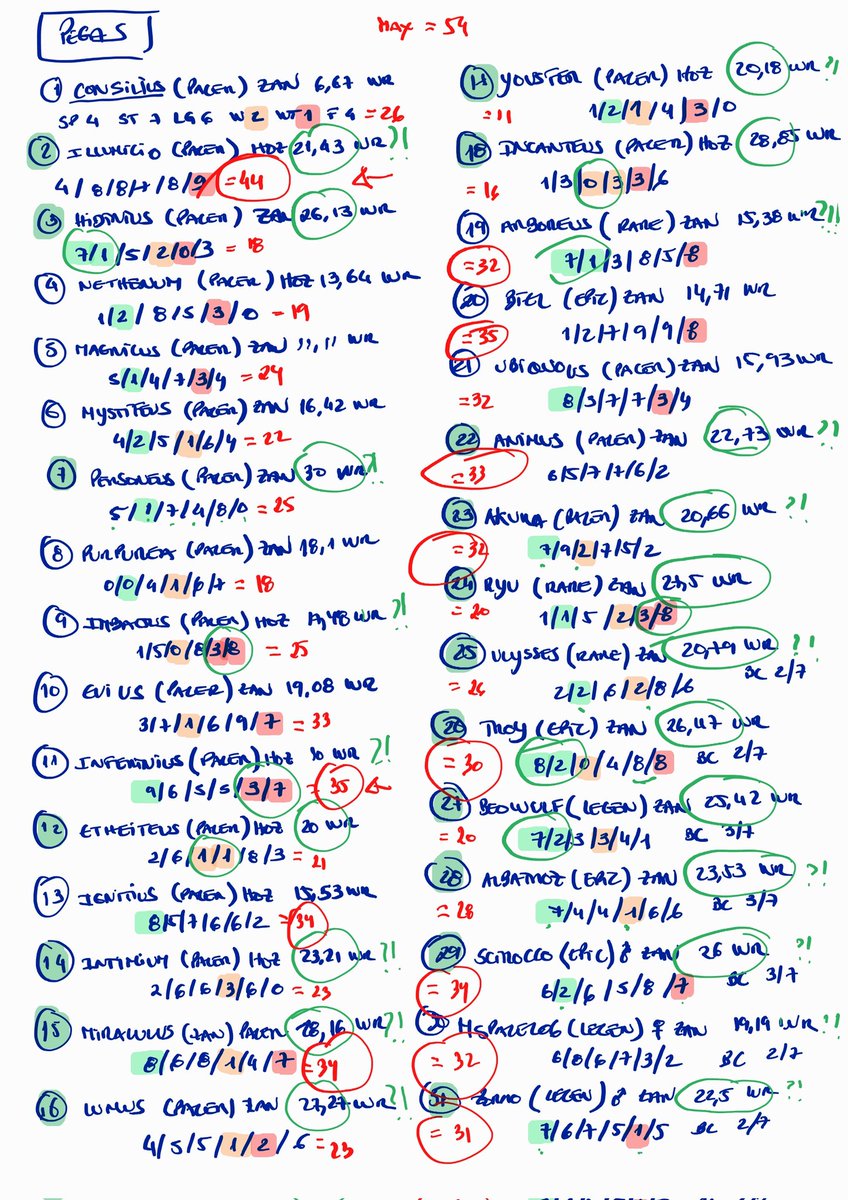 PEGAS
MAX = 54
1 CONSILIUS (PACER) ZAN 6,67 WR
SP 4 ST 7 LG 6 W 2 WT 1 F 4 = 26
2 (PACER) HOZ 21,43 WR ?!
4/8/8/7/8/9 = 44
3 (PACER) ZAN 26,13 WR
7/1/5/2/0/3 = 18
4 NETHERIUM (PACER) HOZ 13,64 WR
1/2/8/5/3/0 = 19
5 MAGNICUS (PACER) ZAN 11,11 WR
5/1/4/7/3/4 = 24
6 MYSTITEUS (PACER) ZAN 16,42 WR
4/2/5/1/6/4 = 22
7 PERSONEUS (PACER) ZAN 30 WR ?!
5/1/7/4/8/0 = 25
8 PURPUREA (PACER) ZAN 18,1 WR
0/0/4/1/6/7 = 18
9 (PACER) HOZ WR ?!
1/5/0/8/3/8 = 25
10 EVIUS (PACER) ZAN 19,08 WR
3/7/1/6/9/7 = 33
11 INFERNIUS (PACER) HOZ WR ?!
9/6/5/5/3/7 = 35
12 ETHEITEUS (PACER) HOZ 20 WR
2/6/1/1/8/3 = 21
13 IGNITIUS (PACER) HOZ 15,53 WR
8/5/7/6/6/2 = 34
14 INTIMIUM (PACER) HOZ 23,21 WR ?!
2/6/6/3/6/0 = 23
15 (ZAN) PACER 28,16 WR ?!
8/6/8/1/4/7 = 34
16 (PACER) ZAN 27,27 WR ?!
4/5/5/1/2/6 = 23
YOUSTER (PACER) HOZ 20,18 WR ?!
= 11 1/2/1/4/3/0
18 INCANTEUS (PACER) HOZ 28,85 WR
= 16 1/3/0/3/3/6
19 ARBOREUS (RARE) ZAN 15,38 WR ?!!
= 32 7/1/3/8/5/8
20 (EPIC) ZAN 14,71 WR
= 35 1/2/7/9/9/8
21 (PACER) ZAN 15,93 WR
= 32 8/3/7/7/3/4
22 ANIMUS (PACER) ZAN 22,73 WR ?!
= 33 6/5/7/7/6/2
23 AKUMA (PACER) ZAN 20,66 WR ?!
= 32 7/9/2/7/5/2
24 RYU (RARE) ZAN WR
= 20 1/1/5/2/3/8
25 ULYSSES (RARE) ZAN 20,79 WR ?!
= 26 2/2/6/2/8/6 BC 2/7
26 TROY (EPIC) ZAN 26,47 WR
= 30 8/2/0/4/8/8 BC 2/7
27 BEOWULF (LEGEN) ZAN 25,42 WR
= 20 7/2/3/3/4/1 BC 3/7
28 ALBATROZ (EPIC) ZAN 23,53 WR ?!
= 28 7/4/4/1/6/6 BC 3/7
29 SCIROCCO (EPIC) ♂ ZAN 26 WR ?!
= 34 6/2/6/5/8/7 BC 3/7
30 (LEGEN) ♀ ZAN 19,19 WR ?!
= 32 6/8/6/7/3/2 BC 2/7
31 ZORRO (LEGEN) ♂ ZAN 22,5 WR ?!
= 31 7/6/7/5/1/5 BC 2/7